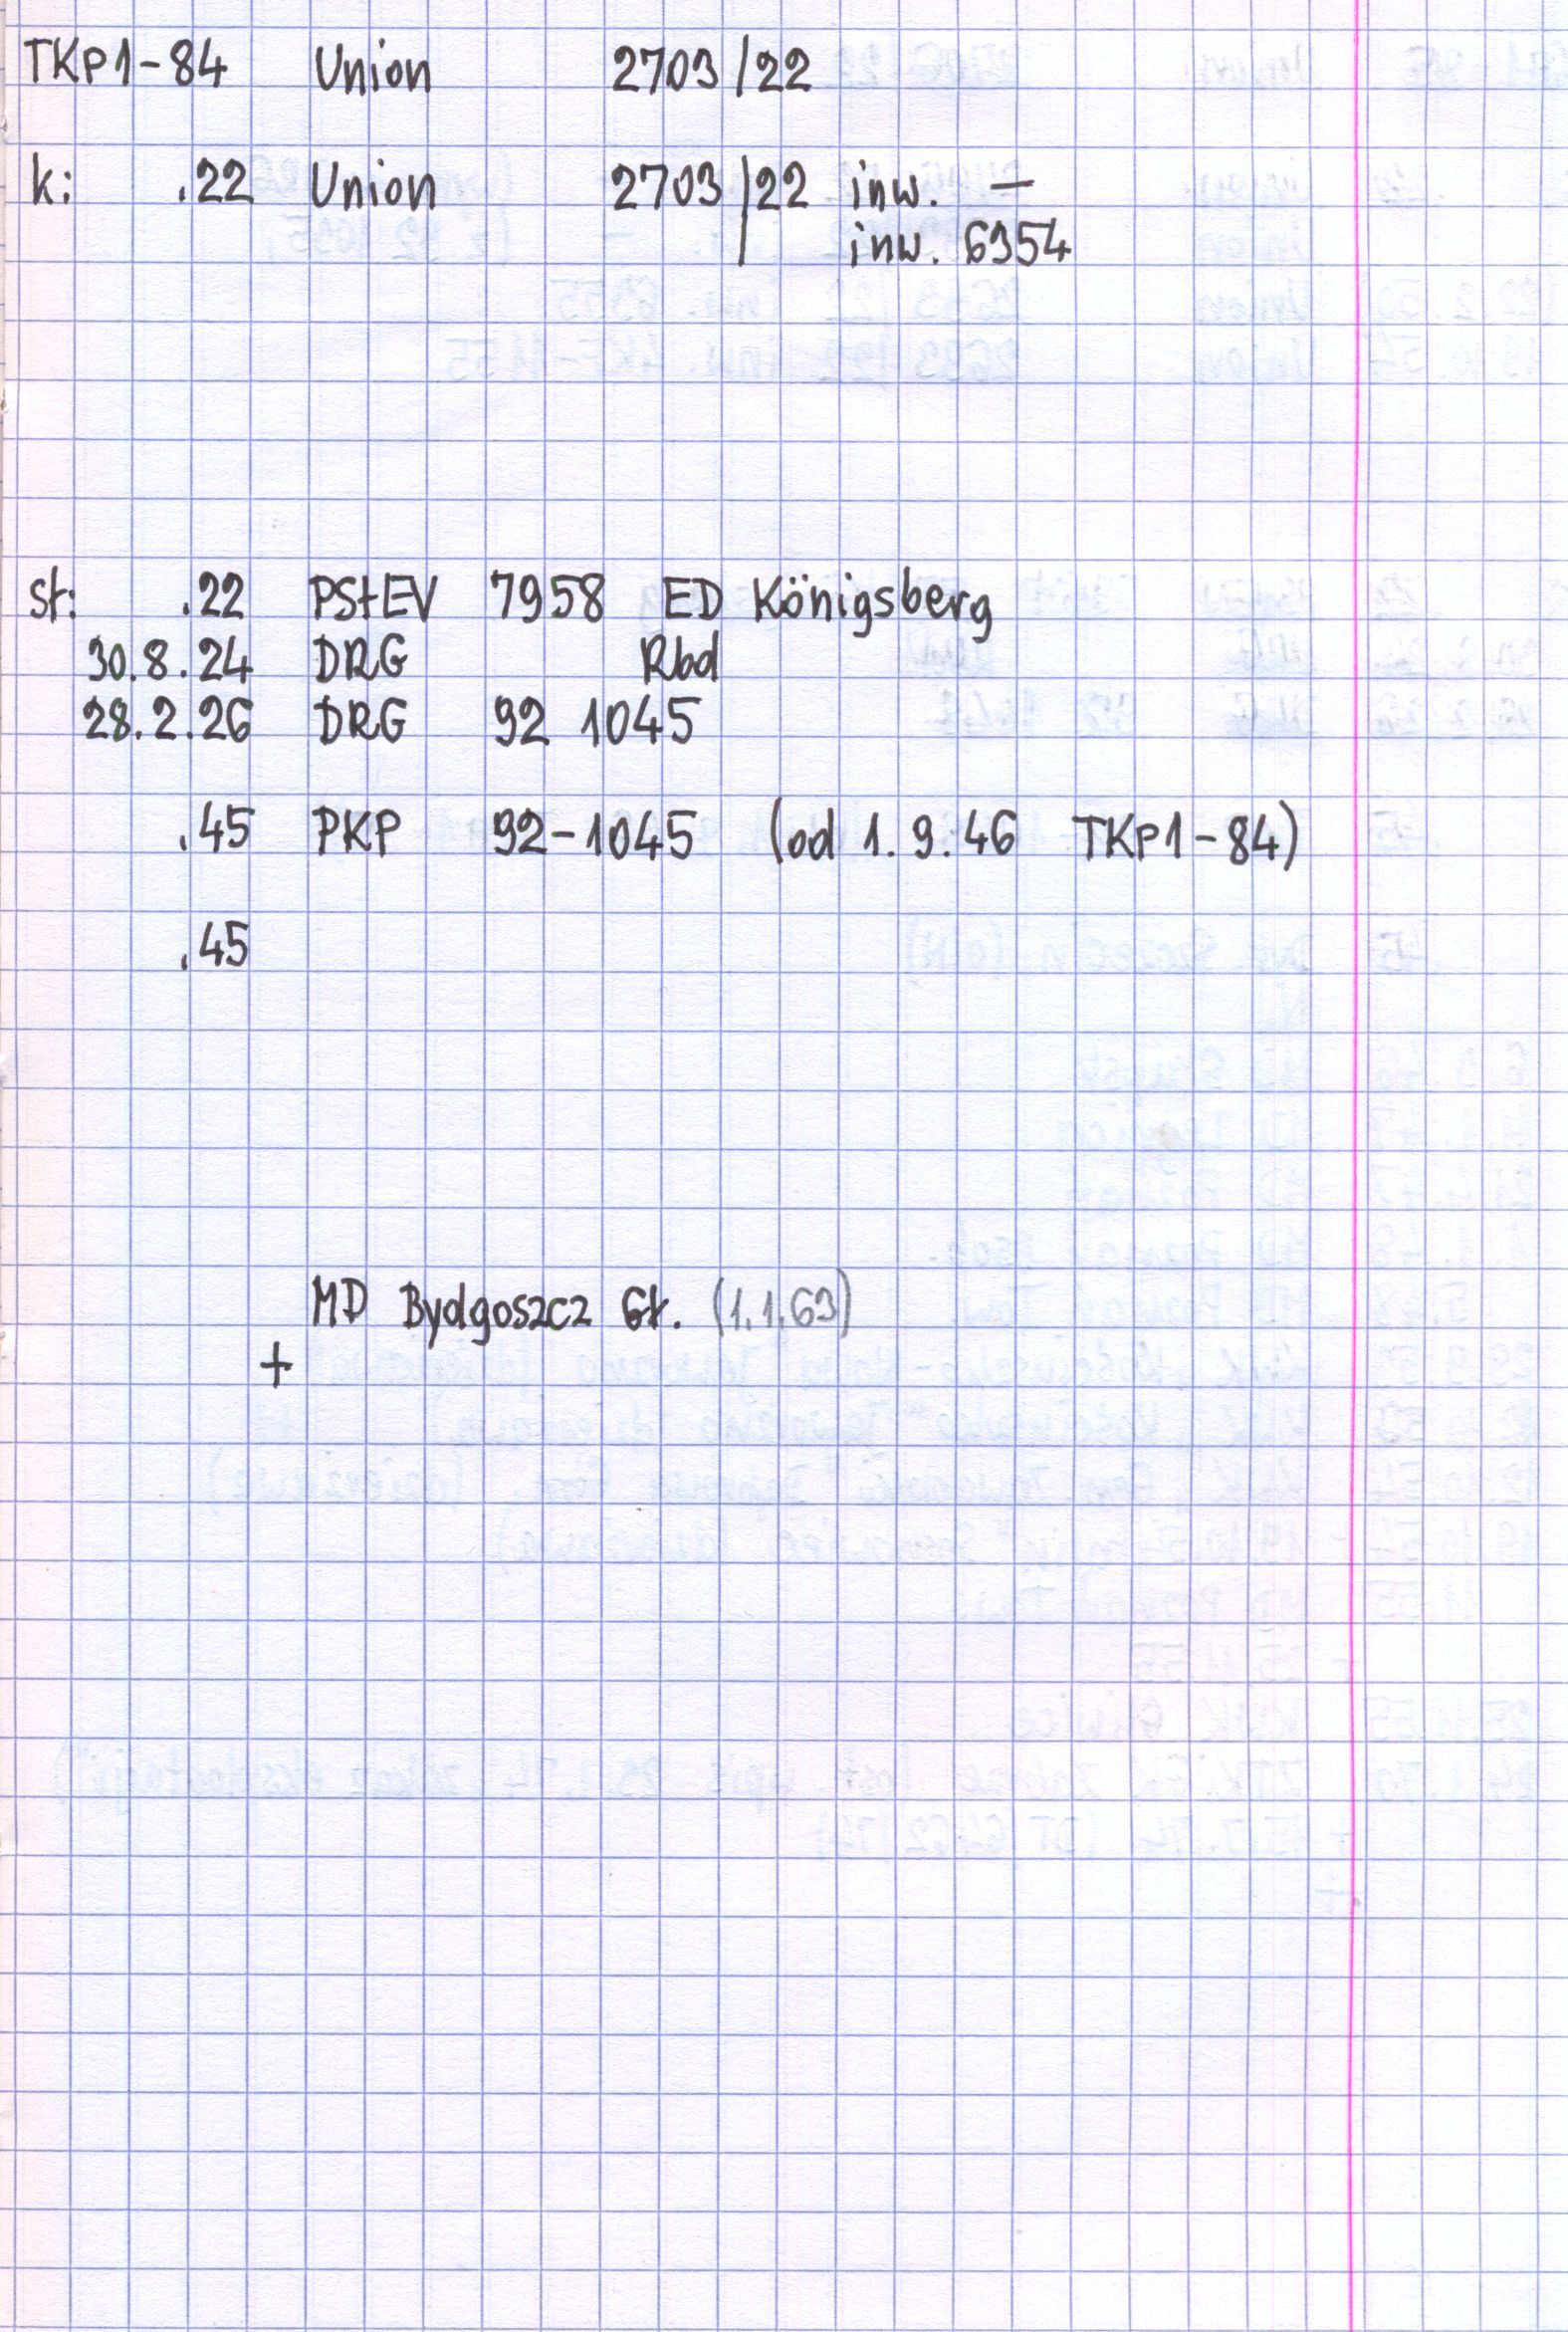 TKp1-84 Union 2703/22
k: .22 Union 2703/22 inw. —
inw. 6954
st: .22 PStEV 7958 ED Königsberg
30.8.24 DRG Rbd
28.2.26 DRG 92 1045
.45 PKP 92-1045 (od 1.9.46 TKp1-84)
.45
MD Bydgoszcz Gł. (1.1.63)
+